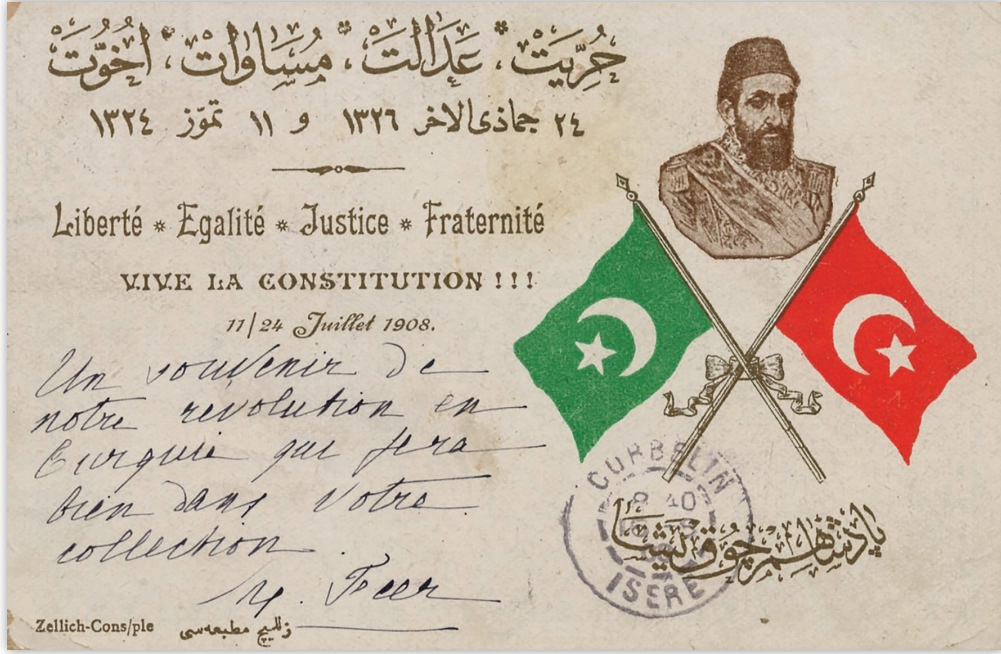 حُرِّيَتْ، عَدَالَتْ، مُسَاوَاتْ، اُخُوَّتْ
٢٤ جماذى الاخر ١٣٢٦ و ١١ تموّز ١٣٢٤
Liberté * Egalité * Justice * Fraternité
VIVE LA CONSTITUTION !!!
11/24 Juillet 1908.
Un souvenir de
notre revolution en
Turquie qui fera
bien dans votre
collection.
Feer
CORBELIN
ISÈRE
پادشاهم چوق يشا
Zellich-Cons/ple زلليچ مطبعه‌سى